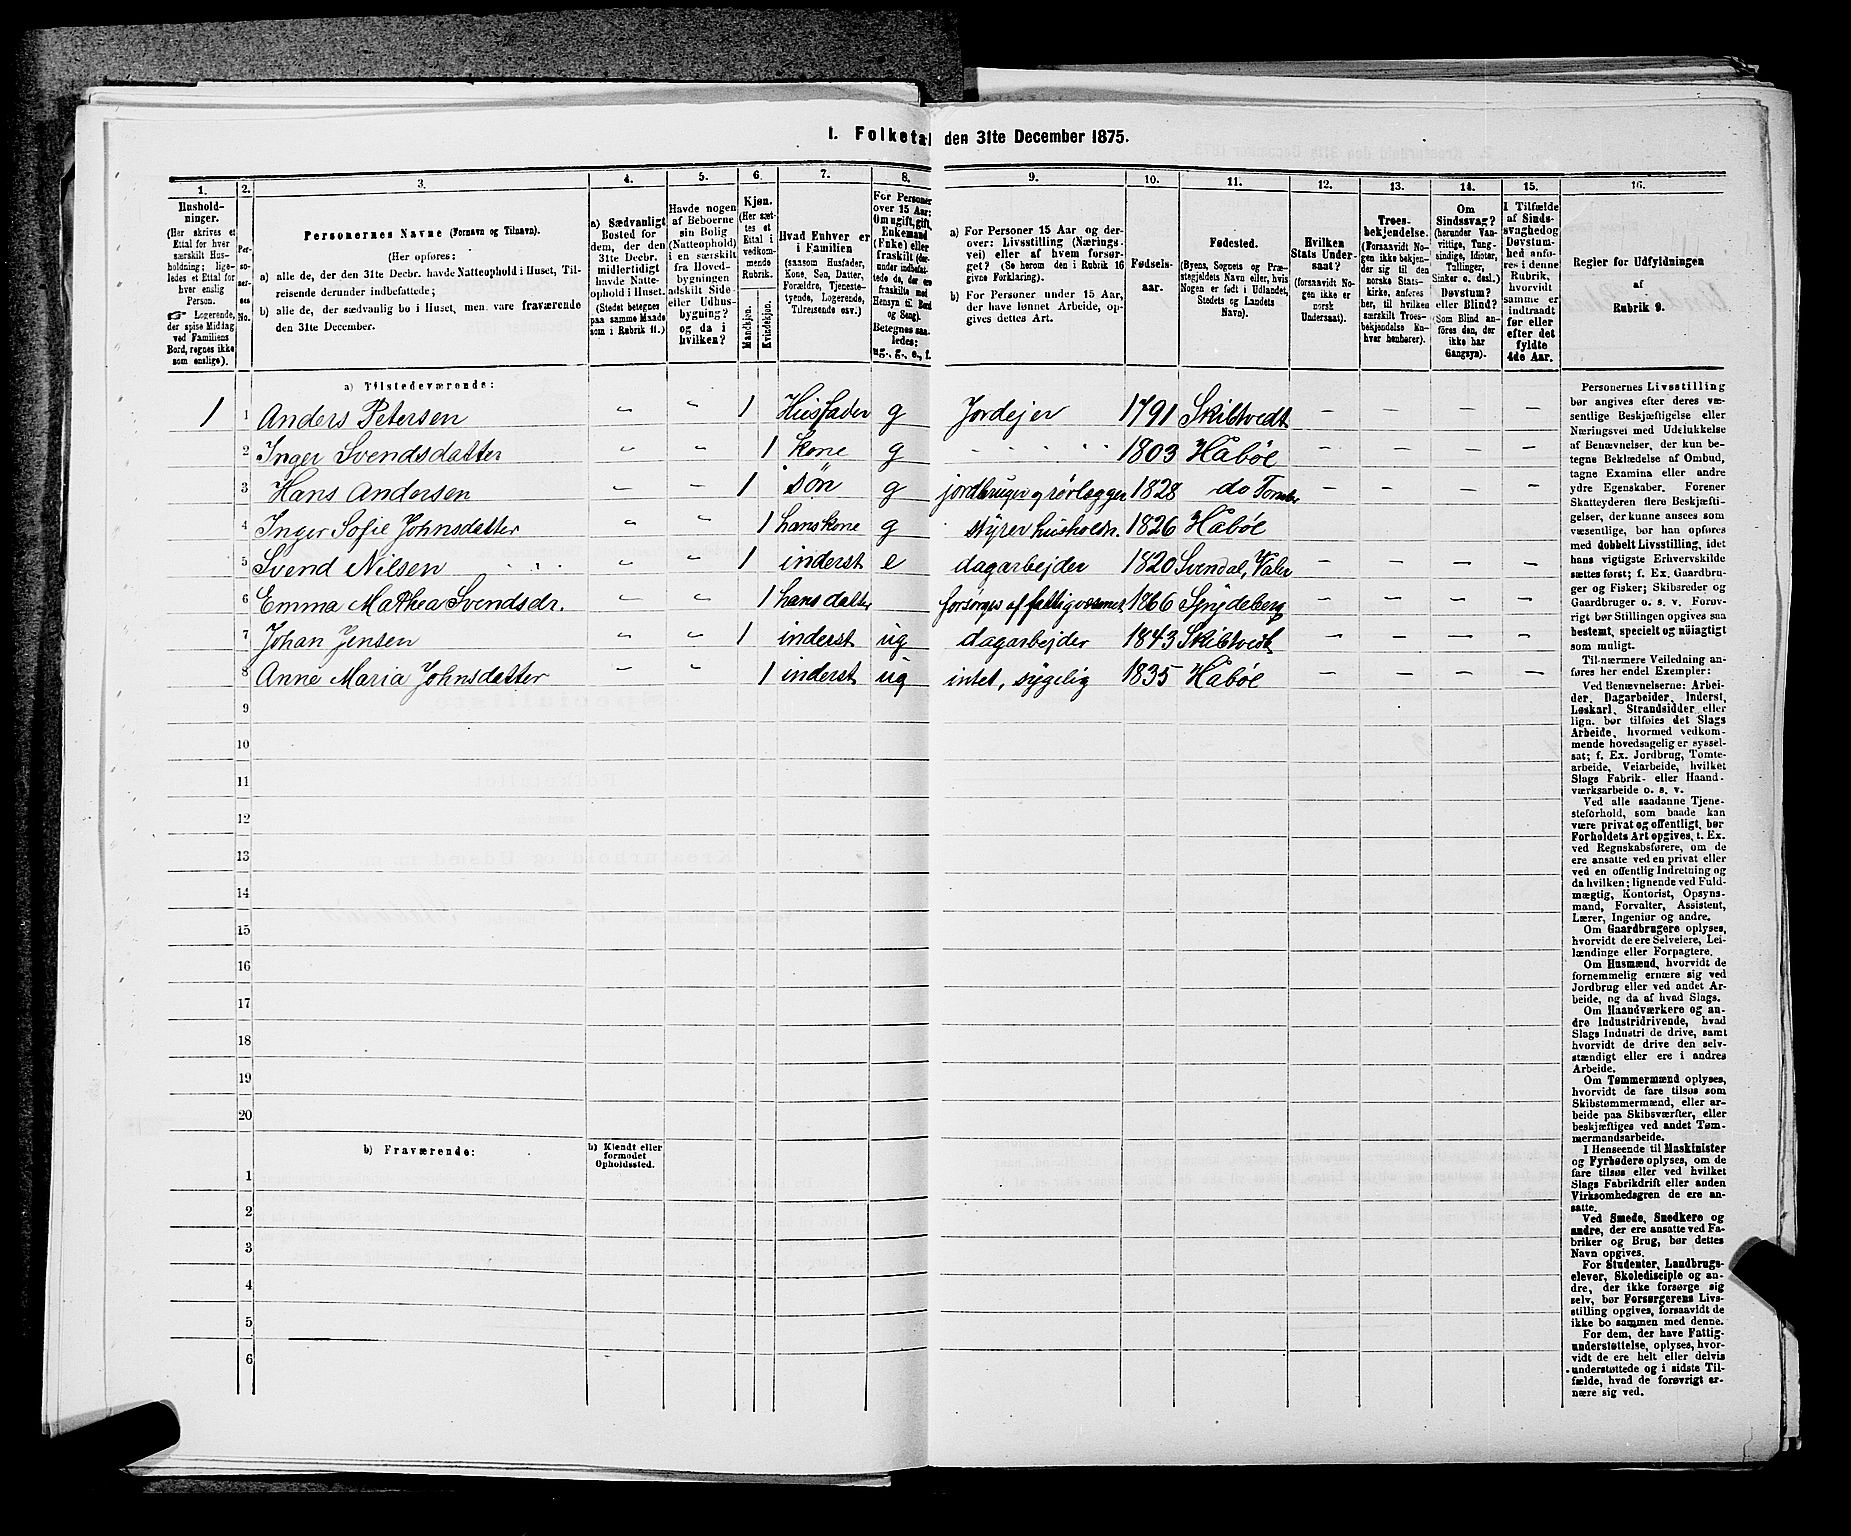 1. Folketal den 31te December 1875.
1.
2.
3.
4.
5.
6.
7.
8.
9.
10.
11.
12.
13.
14.
15.
16.
Hushold-
ninger.
(Her skrives et
Ettal for hver
særskilt Hus-
holdning; lige-
ledes et Ettal for
hver enslig
Person.
☞ Logerende,
der spise Middag
ved Familiens
Bord, regnes ikke
som enslige).
Per-
so-
ner-
nes
No.
Personernes Navne (Fornavn og Tilnavn).
(Her opføres:
a) alle de, der den 31te Decbr. havde Natteophold i Huset, Til-
reisende derunder indbefattede;
b) alle de, der sædvanlig bo i Huset, men vare fraværende
den 31te December.
a) Sædvanligt
Bosted for
dem, der den
31te Decbr.
midlertidigt
havde Natte-
ophold i Huset.
(Stedet betegnes
paa samme Maade
som i Rubrik 11.)
Havde nogen
af Beboerne
sin Bolig
(Natteophold)
i en særskilt
fra Hoved-
bygningen
adskilt Side-
eller Udhus-
bygning?
og da i
hvilken?
Kjøn.
(Her sæt-
tes et
Ettal i
vedkom-
mende
Rubrik.
Mandkjøn.
Kvindekjøn.
Hvad Enhver er
i Familien
(saasom Husfader,
Kone, Søn, Datter,
Forældre, Tjeneste-
tyende, Logerende,
Tilreisende osv.)
For Personer
over 15 Aar:
Om ugift, gift,
Enkemand
(Enke) eller
fraskilt (der-
under indbefat-
tede de, der ere
fraskilte med
Hensyn til Bord
og Seng).
Betegnes saa-
ledes:
ug., g., e., f.
a) For Personer 15 Aar og der-
over: Livsstilling (Nærings-
vei) eller af hvem forsør-
get? (Se herom den i Rubrik 16
givne Forklaring).
b) For Personer under 15 Aar,
der have lønnet Arbeide, op-
gives dettes Art.
Fødsels-
aar.
Fødested.
(Byens, Sognets og Præ-
stegjeldets Navn eller, hvis
Nogen er født i Udlandet,
Stedets og Landets
Navn).
Hvilken
Stats Under-
saat?
(forsaavidt No-
gen ikke er
norsk
Undersaat).
Troes-
bekjendelse.
(Forsaavidt No-
gen ikke bekjen-
der sig til den
norske Stats-
kirke, anføres
her, til hvilken
særskilt Troes-
bekjendelse En-
hver henhører).
Om
Sindssvag?
(herunder Van-
vittige, Tung-
sindige, Idioter,
Tullinger,
Sinker o. desl.)
Døvstum?
eller Blind?
Som Blind an-
føres den, der
ikke har
Gangsyn).
I Tilfælde
af Sinds-
svaghed og
Døvstum-
hed anføres
i denne
Rubrik,
hvorvidt
samme er
indtraadt
før eller
efter det
fyldte
4de Aar.
Regler for Udfyldningen
af
Rubrik 9.
a) Tilstedeværende:
1 1 Anders Petersen " " 1 Husfader g Jordejer 1791 Skibtvedt – – – –
2 Inger Svendsdatter " " 1 kone g 1803 Håbøl – – – –
3 Hans Andersen " " 1 søn g jordbruger og rørlægger 1828 do – – – –
4 Inger Sofie Johnsdatter " " 1 hans kone g styrer husholdn. 1826 Håbøl – – – –
5 Svend Nilsen " " 1 inderst e dagarbejder 1820 Svendal, Valer – – – –
6 Emma Mathea Svendsdr. " " 1 hans datter forsørges af fattigvæsenet 1866 Spydeberg – – – –
7 Johan Jensen " " 1 inderst ug dagarbejder 1843 Skibtvedt – – – –
8 Anne Maria Johnsdatter " " 1 inderst ug intet, sygelig 1835 Håbøl – – – –
9
10
11
12
13
14
15
16
17
18
19
20
b) Fraværende:
b) Kjendt eller
formodet
Opholdssted.
1
2
3
4
5
6
Personernes Livsstilling
bør angives efter deres væ-
sentlige Beskjæftigelse eller
Næringsvei med Udelukkelse
af Benævnelser, der kun be-
tegne Beklædelse af Ombud,
tagne Examina eller andre
ydre Egenskaber. Forener
Skatteyderen flere Beskjæfti-
gelser, der kunne ansees som
væsentlige, bør han opføres
med dobbelt Livsstilling, idet
hans vigtigste Erhvervskilde
sættes først; f. Ex. Gaardbru-
ger og Fisker; Skibsreder og
Gaardbruger o. s. v. Forøv-
rigt bør Stillingen opgives saa
bestemt, specielt og nøiagtigt
som muligt.
Til nærmere Veiledning an-
føres her endel Exempler:
Ved Benævnelserne: Arbei-
der, Dagarbeider, Inderst,
Løskarl, Strandsidder eller
lign. bør tilføies det Slags
Arbeide, hvormed vedkom-
mende hovedsagelig er syssel-
sat; f. Ex. Jordbrug, Tomte-
arbeide, Veiarbeide, hvilket
Slags Fabrik- eller Haand-
værksarbeide o. s. v.
Ved alle saadanne Tjene-
steforhold, som baade kan
være privat og offentligt, bør
Forholdets Art opgives, t. Ex.
ved Regnskabsførere, om de
ere ansatte ved en privat eller
ved en offentlig Indretning og
da hvilken; lignende ved Fuld-
mægtig, Kontorist, Opsyns-
mand, Forvalter, Assistent,
Lærer, Ingeniør og andre.
Om Gaardbrugere oplyses,
hvorvidt de ere Selveiere, Lei-
lændinge eller Forpagtere.
Om Husmænd, hvorvidt de
fornemmelig ernære sig ved
Jordbrug eller ved andet Ar-
beide, og da af hvad Slags.
Om Haandværkere og an-
dre Industridrivende, hvad
Slags Industri de drive, samt
hvorvidt de drive den selv-
stændigt eller ere i andres
Arbeide.
Om Tømmermænd oplyses,
hvorvidt de fare tilsøs som
Skibstømmermænd, eller ar-
beide paa Skibsværfter, eller
beskjæftiges ved andet Tøm-
mermandsarbeide.
I Henseende til Maskinister
og Fyrbødere oplyses, om de
fare tilsøs eller ved hvilket
Slags Fabrikdrift eller anden
Virksomhedsgren de ere an-
satte.
Ved Smede, Snedkere og
andre, der ere ansatte ved Fa-
briker og Brug, bør dettes
Navn opgives.
For Studenter, Landbrugs-
elever, Skoledisciple og an-
dre, der ikke forsørge sig
selv, bør Forsørgerens Livs-
stilling opgives, forsaavidt de
ikke bo sammen med denne.
For dem, der have Fattig-
understøttelse, oplyses, hvor-
vidt de ere helt eller delvis
understøttede og i sidste Til-
fælde, hvad de forøvrigt er-
nære sig ved.